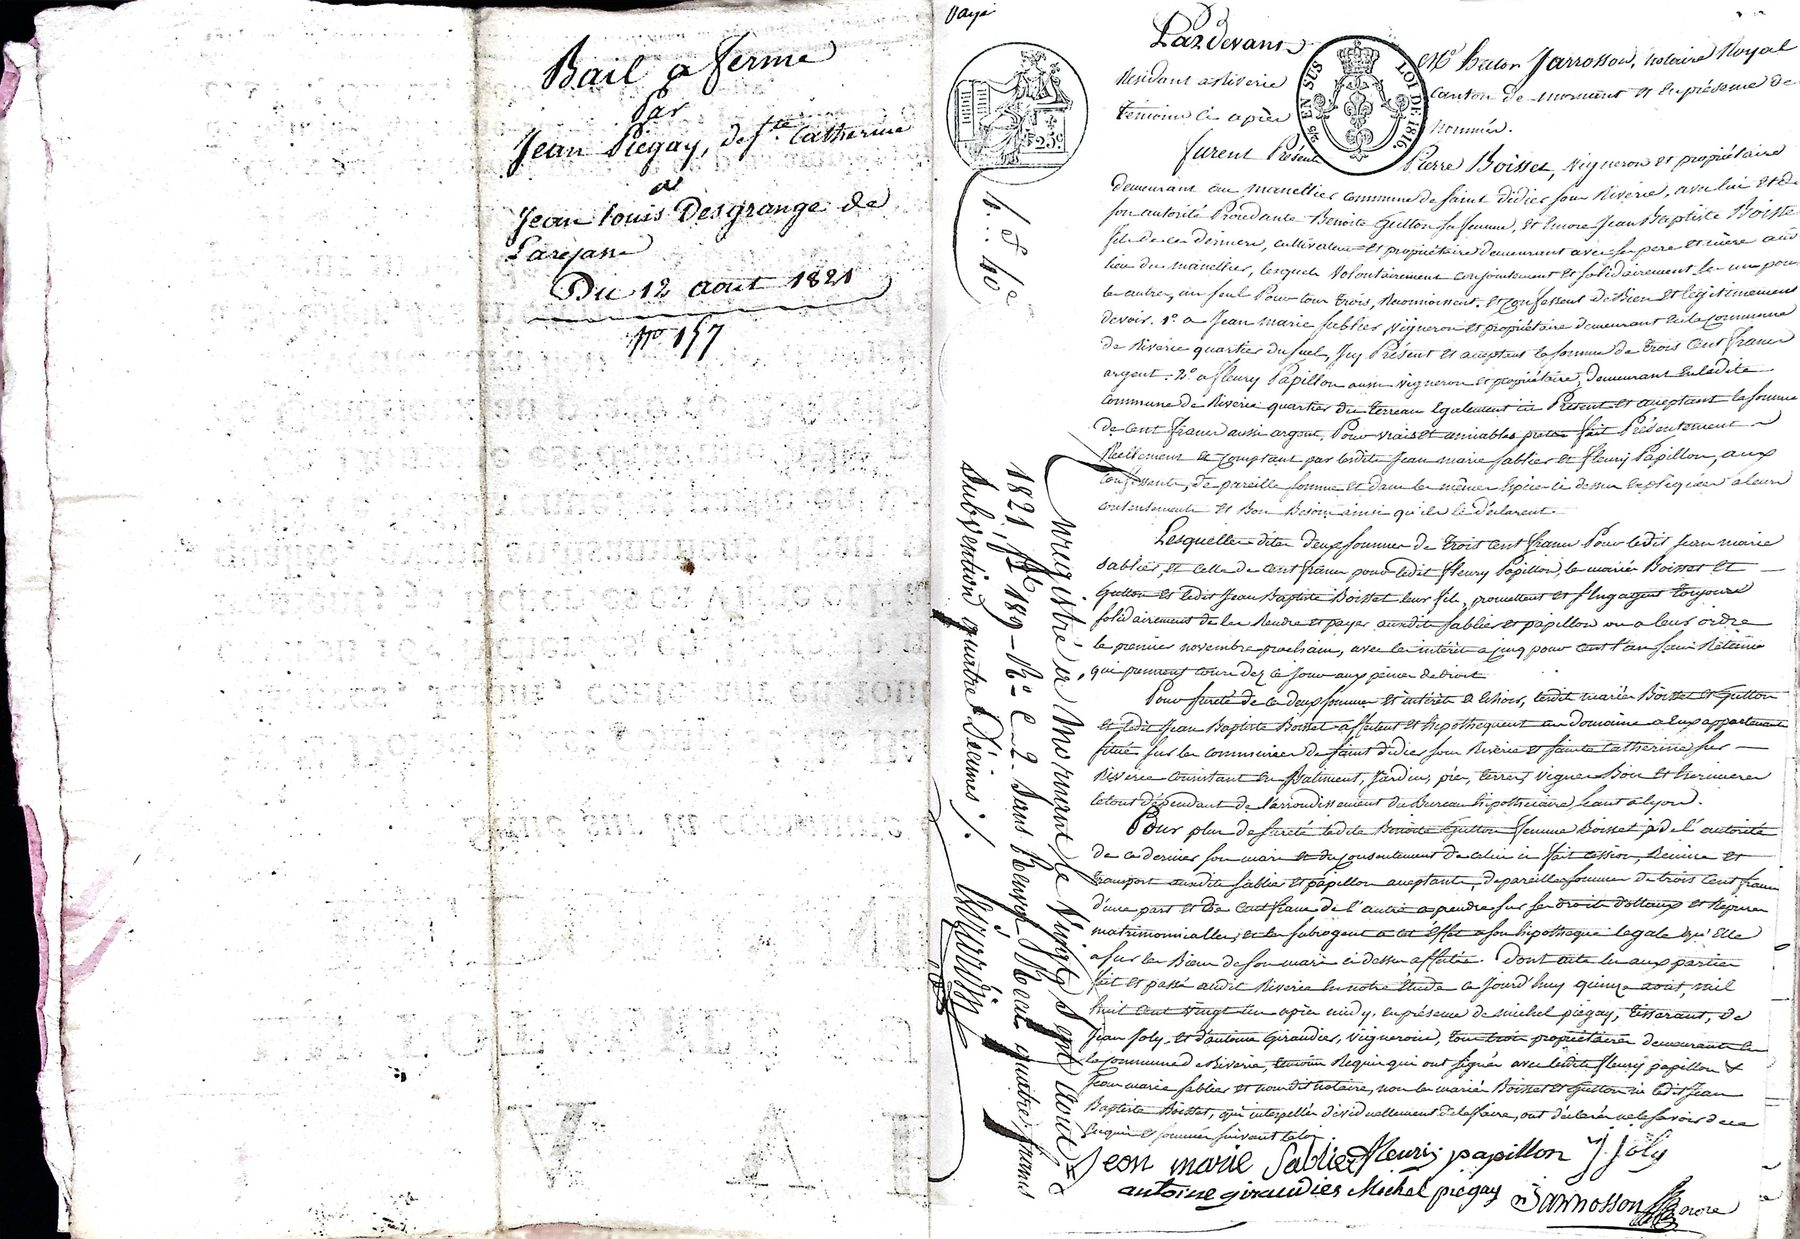 Bail a ferme
Par
Jean Piégay, de Ste Catherine
a
Jean Louis Desgrange de
Larajasse
Du 12 aout 1821
No 157
Payé
Pardevant Me hector Jarrosson, notaire Royal
Résidant a Riverie canton de mornant et en présence de
témoins ci après nommés.
25c EN SUS
LOI DE 1816.
25c
furent Présents Pierre Boisset, vigneron et propriétaire
demeurant au manellier commune de saint didier sous Riverie, avec lui et de
son autorité Procédante Benoite Gutton sa femme, et encore Jean Baptiste Boisset
fils de ces derniers, cultivateur et propriétaire demeurant avec ses pere et mère audit
lieu du manellier, lesquels volontairement conjointement et solidairement les uns pour
les autres, un seul Pour tous trois, Reconnoissent et confessent de Bien et légitimement
devoir. 1o a Jean marie sablier, vigneron et propriétaire demeurant en la commune
de Riverie quartier du fuel, icy Présent et aceptant la somme de trois Cent francs
argent. 2o a fleury Papillon aussi vigneron et propriétaire, demeurant en ladite
commune de Riverie quartier du terreau également ici Présent et aceptant la somme
de Cent francs aussi argent, Pour vrais et amiables prêts fait Présentement
Réellement et comptant par lesdits Jean marie sablier et fleury Papillon, aux
confessants, de pareille somme et dans les mêmes espèces ci dessus expliquées a leur
contentement et Bon Besoin ainsi qu'ils le déclarent.
Lesquelles dites deux sommes de trois cent francs Pour ledit jean marie
sablier, et celle de cent francs pour ledit fleury Papillon, les mariés Boisset et
Gutton et ledit Jean Baptiste Boisset leur fils, promettent et s'engagent toujours
solidairement de les Rendre et payer auxdits sablier et papillon ou a leur ordre
le premier novembre prochain, avec les intérêt a cinq pour cent l'an sans Retenue
qui prennent cours dez ce jour aux peines de droit
Pour sureté de ces deux sommes et intérêts a échoir, lesdits mariés Boisset et Gutton
et ledit Jean Baptiste Boisset affectent et hipothequent un domaine a eux appartenant
situé sur les communes de saint didier sous Riverie et sainte Catherine sur
Riverie consistant en Batiment, Jardin, pré, terres, vignes Bois et
le tout dépendant de l'arrondissement du Bureau hipothécaire séant a lyon.
Pour plus de sureté ladite Benoite Gutton femme Boisset p. de l'autorité
de ce dernier son mari et du consentement de celui ci fait cession, Remise et
transport auxdits sablier et papillon aceptants, de pareilles sommes de trois Cent francs
d'une part et De cent francs de l'autre a prendre sur ses droits dottaux et reprises
matrimonialles; et les subrogent a cet effet a son hipotheque légale qu'elle
a sur les Biens de son mari ci dessus affectés. Dont acte lu aux parties
fait et passé audit Riverie en notre étude ce jourd'huy quinze août, mil
huit cent vingt un après midy, en présence de michel piégay, tisserant, de
Jean Joly et d'antoine Giraudier, vignerons, tous trois propriétaires demeurants en
la commune de Riverie, témoins Requis qui ont signés avec lesdits fleury papillon &
Jean marie sablier et nous dit notaire, non les mariés Boisset et Gutton ni ledit Jean
Baptiste Boisset, qui interpellés dividuellement de le faire, ont déclarés ne le savoir de ce
Enquis et sommés suivant la loi.
Jean marie Sablier fleuris papillon J Joly
antoine giraudier Michel piegay Jarrosson nore
4.. & 40c
Enregistré à Mornant le Vingt Sept aout
1821, fo 189 - Ro C 2 Sans Renvoi Reçu quatre francs
Subvention quatre Décimes /.